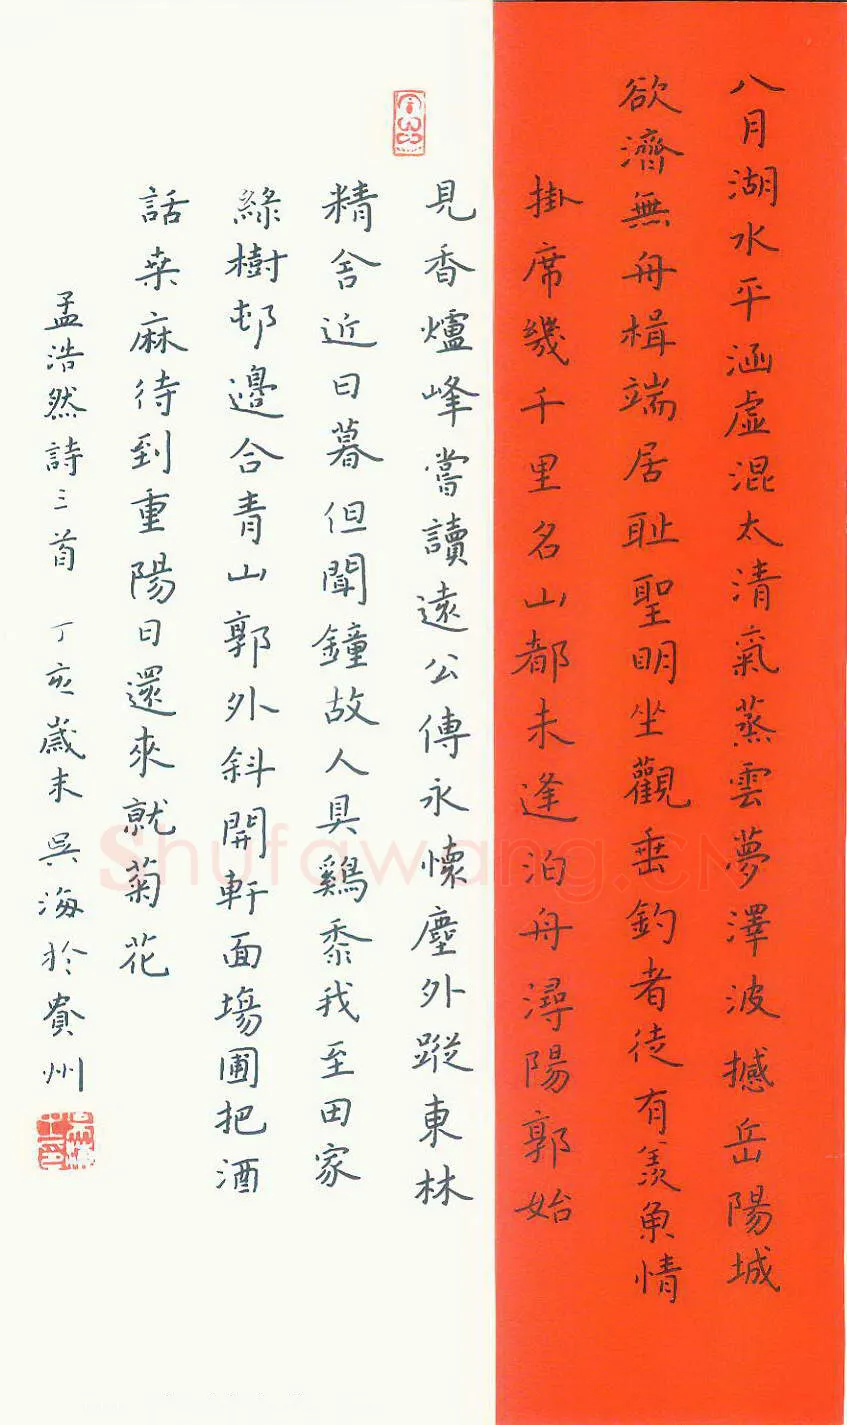 八月湖水平涵虛混太清氣蒸雲夢澤波撼岳陽城
欲濟無舟楫端居耻聖明坐觀垂釣者徒有羨魚情
掛席幾千里名山都未逢泊舟潯陽郭始
見香爐峰嘗讀遠公傳永懷塵外蹤東林
精舍近日暮但聞鐘故人具鷄黍我至田家
綠樹邨邊合青山郭外斜開軒面場圃把酒
話桒麻待到重陽日還來就菊花
孟浩然詩三首 丁亥歲末吳海於貴州
Shufawang.CN